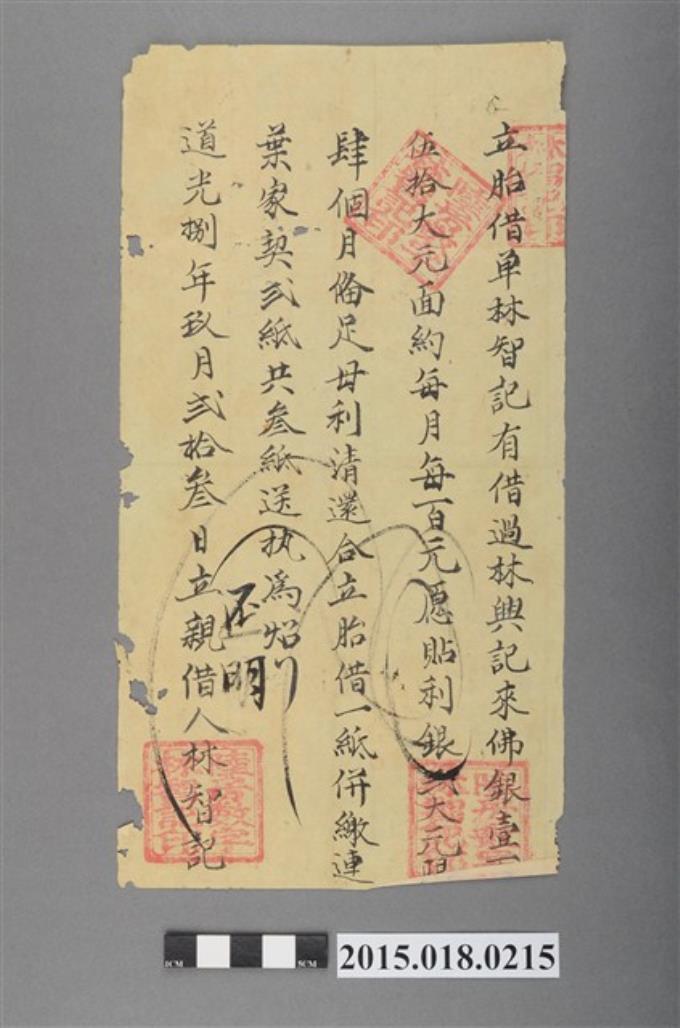 立胎借单林智記有借過林興記來佛銀壹百
伍拾大元面約每月每百元愿貼利銀弍大元限
肆個月俻足母利清還合立胎借一紙併繳連
葉家契弍紙共叁紙送执為炤
道光捌年玖月弍拾叁日立親借人林智記
明
1CM 5CM
2015.018.0215